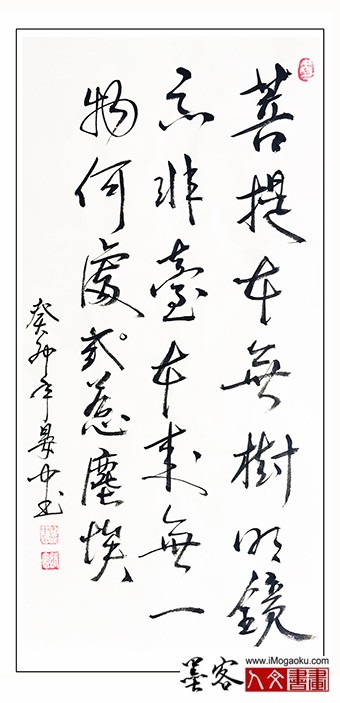 菩提本無樹明鏡
亦非臺本來無一
物何處或惹塵埃
癸卯年
墨客
www.iMogaoku.com
人文書畫